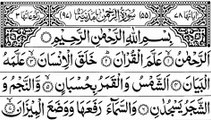 اٰيَاتُهَا ٧٨ (٥٥) سُوْرَةُ الرَّحْمٰنِ مَدَنِيَّةٌ (٩٧) رُكُوْعَاتُهَا ٣
بِسْمِ اللّٰهِ الرَّحْمٰنِ الرَّحِيْمِ
اَلرَّحْمٰنُ ۙ عَلَّمَ الْقُرْاٰنَ ؕ خَلَقَ الْاِنْسَانَ ۙ عَلَّمَهُ
الْبَيَانَ اَلشَّمْسُ وَالْقَمَرُ بِحُسْبَانٍ ۙ وَّالنَّجْمُ وَ
الشَّجَرُ يَسْجُدٰنِ وَالسَّمَآءَ رَفَعَهَا وَوَضَعَ الْمِيْزَانَ ۙ